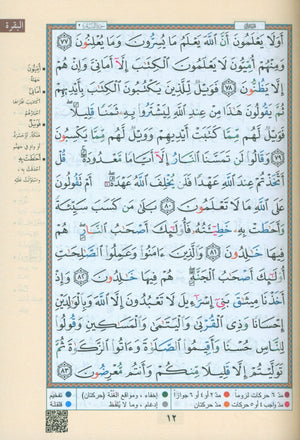 البقرة
أَوَلَا يَعْلَمُونَ أَنَّ ٱللَّهَ يَعْلَمُ مَا يُسِرُّونَ وَمَا يُعْلِنُونَ ٧٧
وَمِنْهُمْ أُمِّيُّونَ لَا يَعْلَمُونَ ٱلْكِتَٰبَ إِلَّآ أَمَانِيَّ وَإِنْ هُمْ
إِلَّا يَظُنُّونَ ٧٨ فَوَيْلٌ لِّلَّذِينَ يَكْتُبُونَ ٱلْكِتَٰبَ بِأَيْدِيهِمْ
ثُمَّ يَقُولُونَ هَٰذَا مِنْ عِندِ ٱللَّهِ لِيَشْتَرُوا۟ بِهِۦ ثَمَنًا قَلِيلًا
فَوَيْلٌ لَّهُم مِّمَّا كَتَبَتْ أَيْدِيهِمْ وَوَيْلٌ لَّهُم مِّمَّا يَكْسِبُونَ
٧٩ وَقَالُوا۟ لَن تَمَسَّنَا ٱلنَّارُ إِلَّآ أَيَّامًا مَّعْدُودَةً قُلْ
أَتَّخَذْتُمْ عِندَ ٱللَّهِ عَهْدًا فَلَن يُخْلِفَ ٱللَّهُ عَهْدَهُۥٓ أَمْ تَقُولُونَ
عَلَى ٱللَّهِ مَا لَا تَعْلَمُونَ ٨٠ بَلَىٰ مَن كَسَبَ سَيِّئَةً
وَأَحَٰطَتْ بِهِۦ خَطِيٓـَٔتُهُۥ فَأُو۟لَٰٓئِكَ أَصْحَٰبُ ٱلنَّارِ هُمْ
فِيهَا خَٰلِدُونَ ٨١ وَٱلَّذِينَ ءَامَنُوا۟ وَعَمِلُوا۟ ٱلصَّٰلِحَٰتِ
أُو۟لَٰٓئِكَ أَصْحَٰبُ ٱلْجَنَّةِ هُمْ فِيهَا خَٰلِدُونَ ٨٢ وَإِذْ
أَخَذْنَا مِيثَٰقَ بَنِىٓ إِسْرَٰٓءِيلَ لَا تَعْبُدُونَ إِلَّا ٱللَّهَ وَبِٱلْوَٰلِدَيْنِ
إِحْسَانًا وَذِى ٱلْقُرْبَىٰ وَٱلْيَتَٰمَىٰ وَٱلْمَسَٰكِينِ وَقُولُوا۟
لِلنَّاسِ حُسْنًا وَأَقِيمُوا۟ ٱلصَّلَوٰةَ وَءَاتُوا۟ ٱلزَّكَوٰةَ ثُمَّ
تَوَلَّيْتُمْ إِلَّا قَلِيلًا مِّنكُمْ وَأَنتُم مُّعْرِضُونَ ٨٣
أُمِّيُّونَ
أَمَانِيَّ
فَوَيْلٌ
مدّ ٦ حركات لزوماً
مدّ ٢ أو ٤ أو ٦ جوازاً
إخفاء، ومواقع الغُنَّة (حركتان)
تفخيم
مدّ واجب ٤ أو ٥ حركات
مدّ حركتان
إدغام، وما لا يُلفَظ
قلقلة
١٢